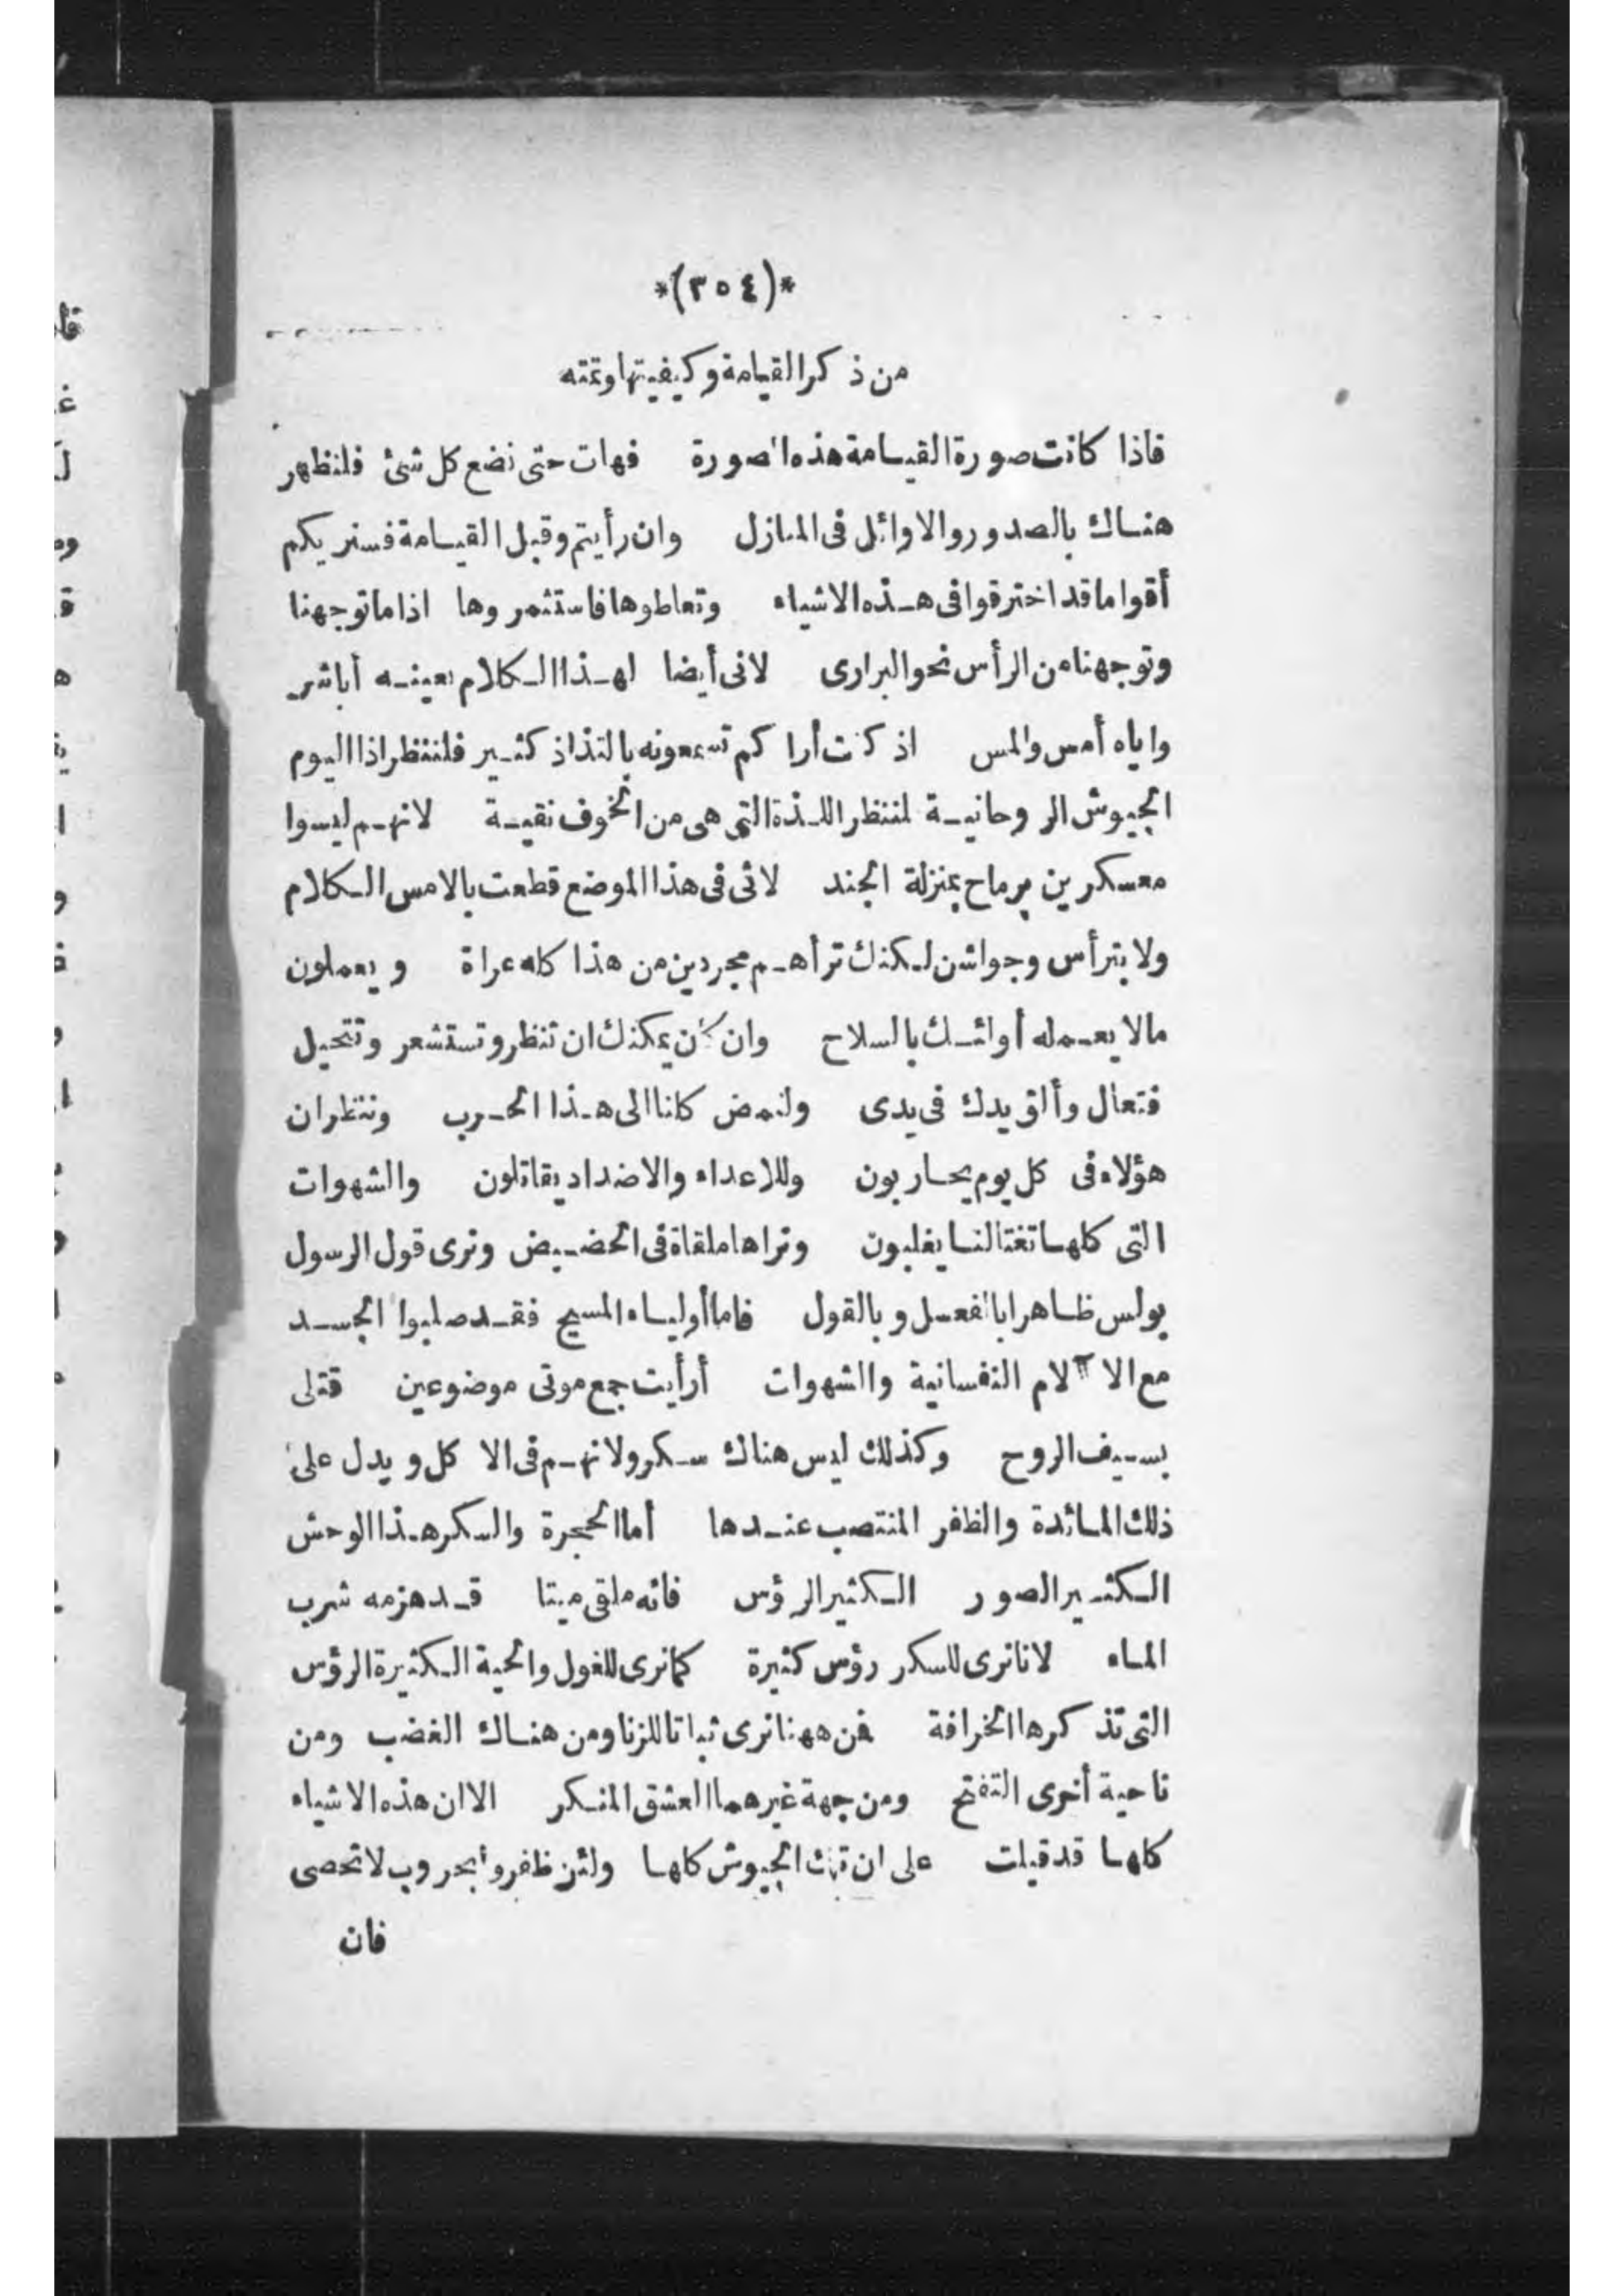 *(٣٥٤)*
من ذكر القيامة وكيفيتها وتمته
فاذا كانت صورة القيامة هذه الصورة فهات حتى نضع كل شئ فلنظهر
هناك بالصدور والاوائل فى المنازل وان رأيتم وقبل القيامة فسنريكم
أقواما قد اخترقوا فى هذه الاشياء وتعاطوها فاستثمروها اذا ما توجهنا
وتوجهنا من الرأس نحو البرارى لانى أيضا لهذا الكلام بعينه أباشر
واياه أمس والمس اذ كنت أراكم تسمعونه بالتذاذ كثير فلننتظر اذا اليوم
الجيوش الروحانية لننظر اللذة التى هى من الخوف نقية لانهم ليسوا
معسكرين برماح بمنزلة الجند لانى فى هذا الموضع قطعت بالامس الكلام
ولا بترأس وجواشن لكنك تراهم مجردين من هذا كله عراة ويعملون
مالا يعمله أولئك بالسلاح وان كان يمكنك ان تنظر وتستشعر وتتحيل
فتعال وألق يدك فى يدى ولنمض كلنا الى هذا الحرب وننظر ان
هؤلاء فى كل يوم يحاربون وللاعداء والاضداد يقاتلون والشهوات
التى كلها تغتالنا يغلبون ونراها ملقاة فى الحضيض ونرى قول الرسول
بولس ظاهرا بالفعل وبالقول فاما أولياء المسيح فقد صلبوا الجسد
مع الآلام النفسانية والشهوات أرأيت جمع موتى موضوعين قتلى
بسيف الروح وكذلك ليس هناك سكر ولا نهم فى الاكل ويدل على
ذلك المائدة والظفر المنتصب عندها أما الحجرة والسكر هذا الوحش
الكثير الصور الكثير الرؤس فانه ملقى ميتا قد هزمه شرب
الماء لانا نرى للسكر رؤس كثيرة كما نرى للغول والحية الكثيرة الرؤس
التى تذكرها الخرافة فمن ههنا نرى نباتا للزنا ومن هناك الغضب ومن
ناحية أخرى التفتح ومن جهة غيرهما العشق المنكر الا ان هذه الاشياء
كلها قد قيلت على ان تلك الجيوش كلها ولئن ظفروا بحروب لا تحصى
فان